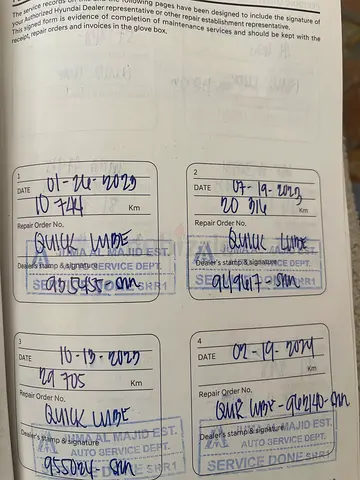 The service records on the following pages have been designed to include the signature of
your Authorized Hyundai Dealer representative or other repair establishment representative.
This signed form is evidence of completion of maintenance services and should be kept with the
receipt, repair orders and invoices in the glove box.
1
DATE 01-26-2023
10 744 Km
Repair Order No.
QUICK LUBE
JUMA AL MAJID EST.
Dealer's stamp & signature
AUTO SERVICE DEPT.
SERVICE DONE SHR1
2
DATE 07-19-2023
20 316 Km
Repair Order No.
QUICK LUBE
JUMA AL MAJID EST.
Dealer's stamp & signature
AUTO SERVICE DEPT.
SERVICE DONE SHR1
3
DATE 10-13-2023
29 705 Km
Repair Order No.
QUICK LUBE
JUMA AL MAJID EST.
Dealer's stamp & signature
AUTO SERVICE DEPT.
SERVICE DONE SHR1
4
DATE 02-19-2024
Km
Repair Order No.
LUBE
JUMA AL MAJID EST.
Dealer's stamp & signature
AUTO SERVICE DEPT.
SERVICE DONE SHR1